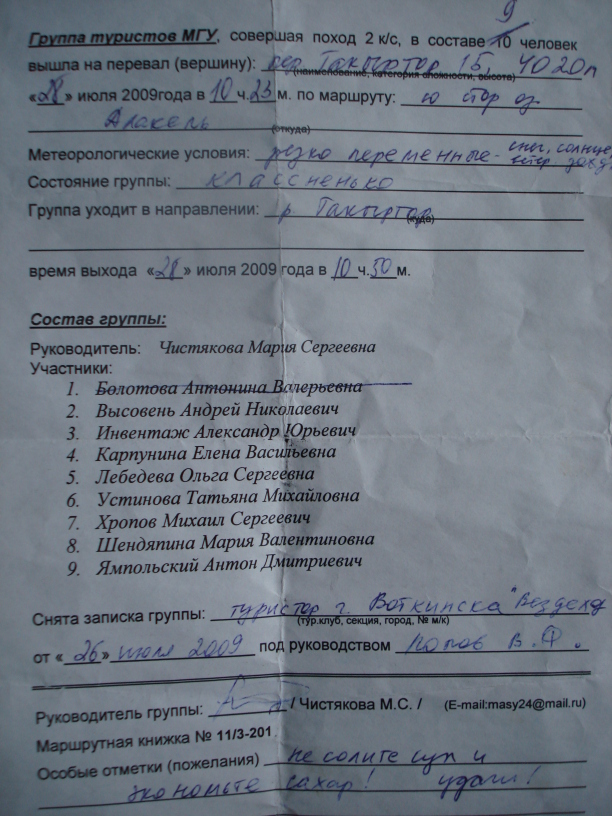 9
Группа туристов МГУ, совершая поход 2 к/с, в составе 10 человек
вышла на перевал (вершину): Такыртор 1Б, 4020м
(наименование, категория сложности, высота)
«28» июля 2009года в 10 ч.23 м. по маршруту: ю стор оз.
Алакель
(откуда)
Метеорологические условия: резко переменные - снег, солнце,
ветер дождь
Состояние группы: классненько
Группа уходит в направлении: р. Такыртор
(куда)
время выхода «28» июля 2009 года в 10 ч.50 м.
Состав группы:
Руководитель: Чистякова Мария Сергеевна
Участники:
1. Болотова Антонина Валерьевна
2. Высовень Андрей Николаевич
3. Инвентаж Александр Юрьевич
4. Карпунина Елена Васильевна
5. Лебедева Ольга Сергеевна
6. Устинова Татьяна Михайловна
7. Хропов Михаил Сергеевич
8. Шендяпина Мария Валентиновна
9. Ямпольский Антон Дмитриевич
Снята записка группы: туристов г. Воткинска "Вездеход
(тур.клуб, секция, город, № м/к)
от «26» июля 2009 под руководством Попов В.Ф.
Руководитель группы: / Чистякова М.С. / (E-mail:masy24@mail.ru)
Маршрутная книжка № 11/3-201
Особые отметки (пожелания) не солите суп и
экономьте сахар! удачи!